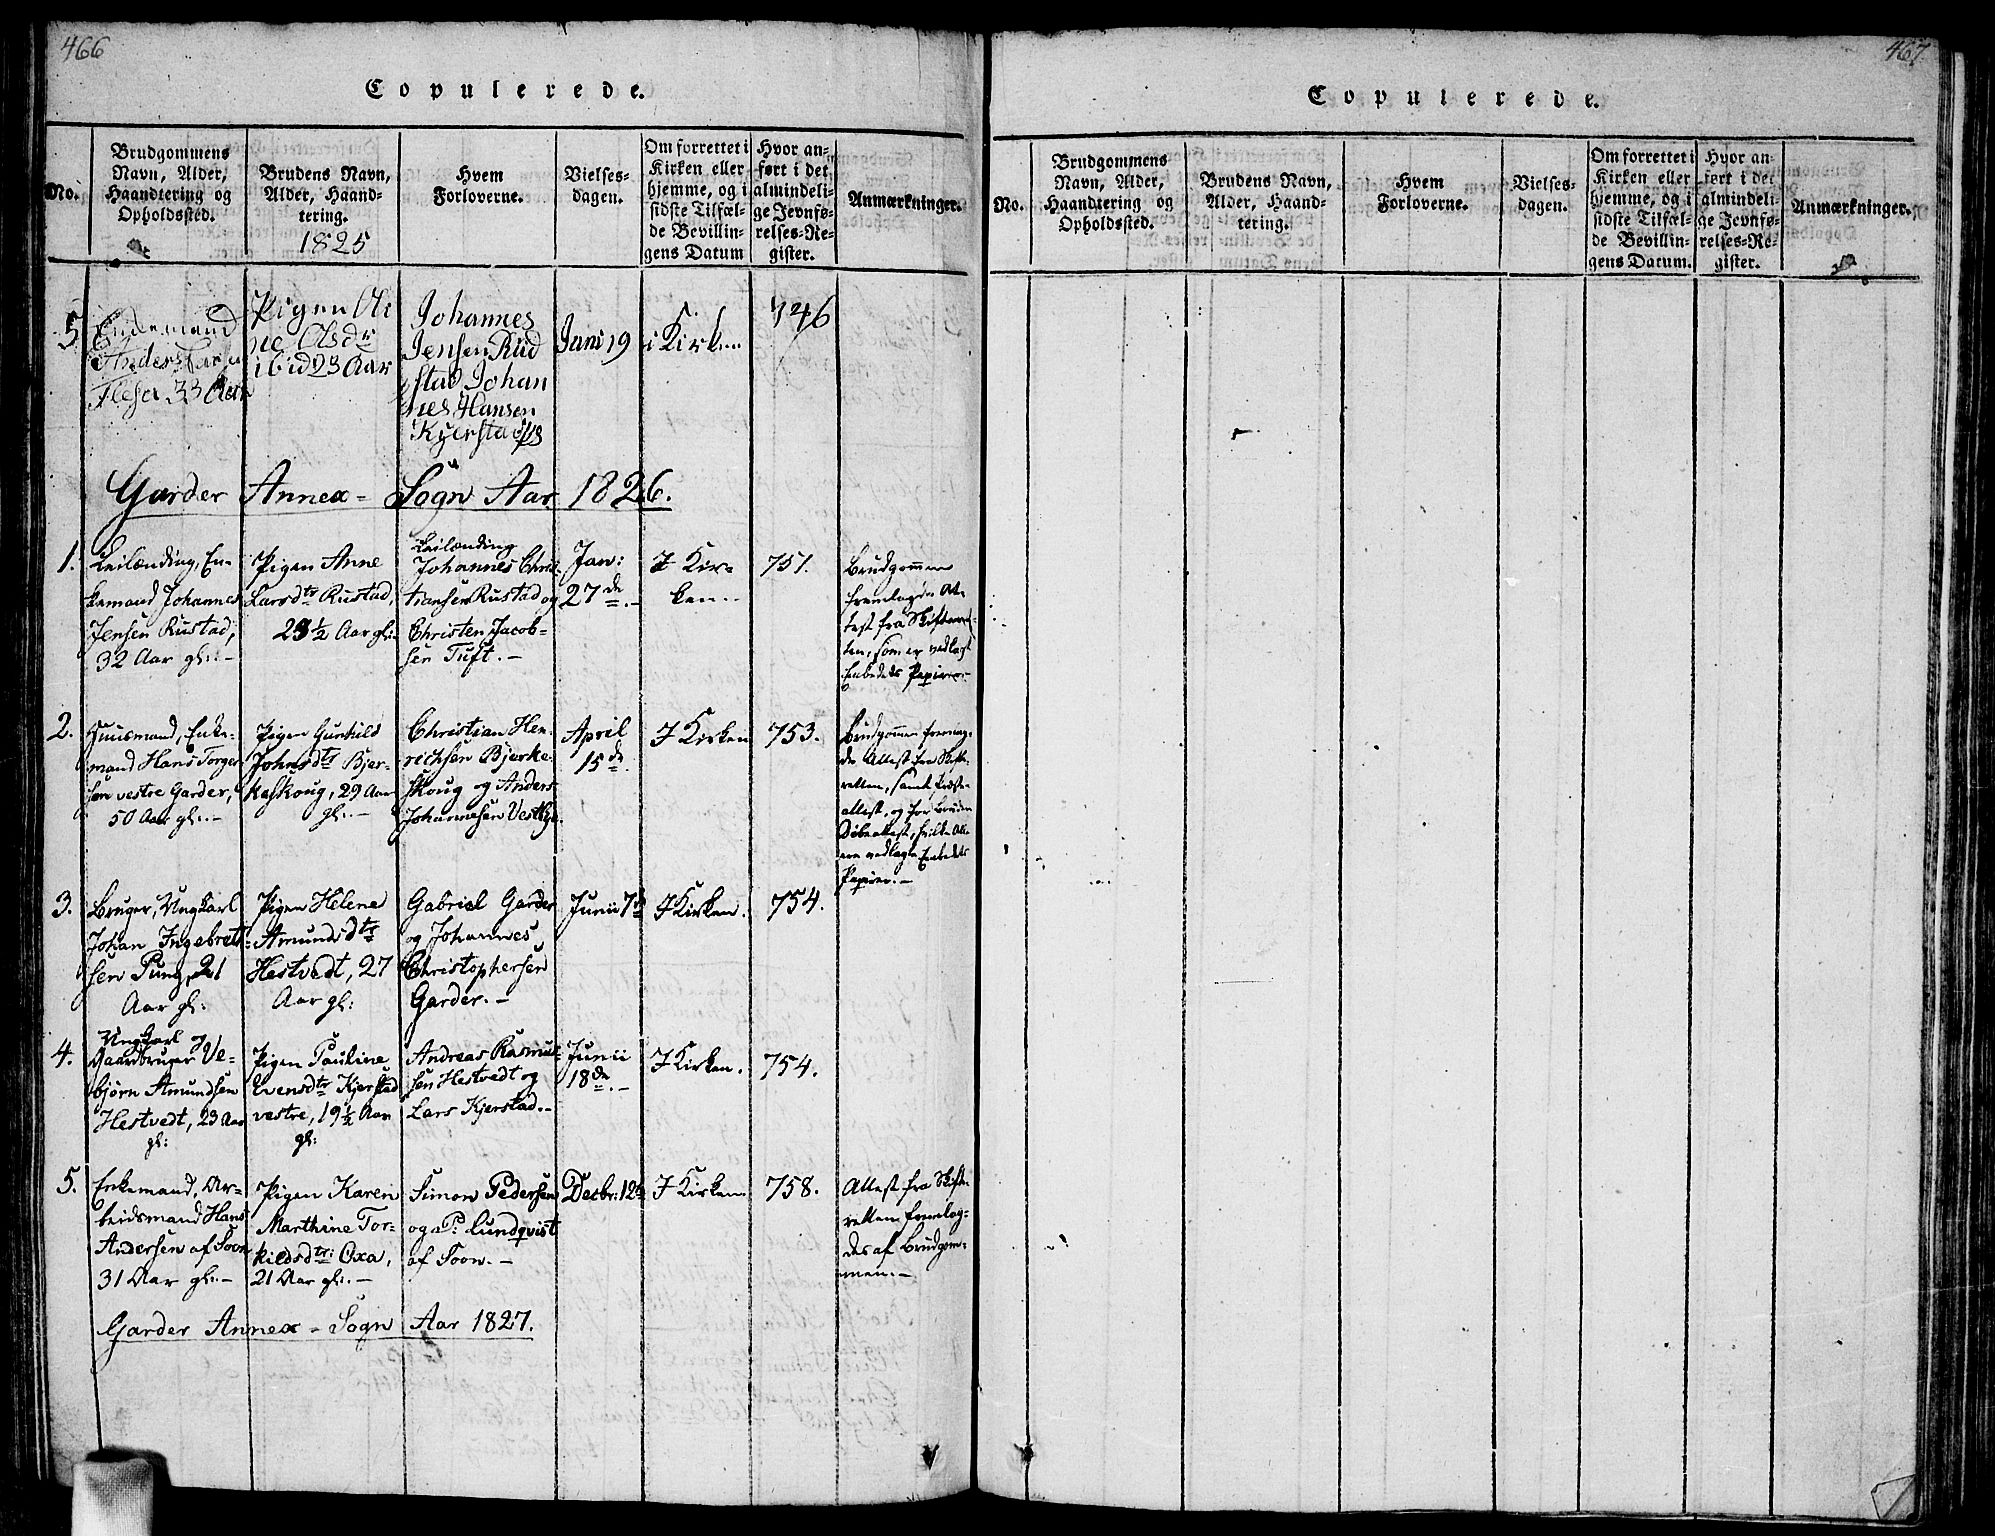 466
Copulerede.
No.
Brudgommens
Navn, Alder,
Haandtering og
Opholdssted.
Brudens Navn,
Alder, Haand-
tering.
1825
Hvem
Forloverne.
Vielses-
dagen.
Om forrettet i
Kirken eller
hjemme, og i
sidste Tilfæl-
de Bevillin-
gens Datum
Hvor an-
ført i det
almindeli-
ge Jevnfø-
relses-Re-
gister.
Anmærkninger.
5
Enkemand
Anders
33 Aar
Pigen Oli
ne Olsdr
ibid 23 Aar
Johannes
Jensen Rud
stad Johan
nes Hansen
Kjerstad
Juni 19
i Kirken
746
Garder Annex - Sogn Aar 1826.
1.
Leilænding, En-
kemand Johannes
Jensen Rustad,
32 Aar gl: -
Pigen Anne
Larsdtr Rustad,
23½ Aar gl:
Leilænding
Johannes Chris-
tiansen Rustad og
Christen Jacob-
sen Tuft. -
Jan:
27de. -
I Kir-
ken. -
751.
Brudgommen
fremlagde At-
test fra Skifteret-
ten, som er vedlagt
Embedets Papirer. -
2.
Huusmand, Enke-
mand Hans Torger-
sen vestre Garder,
50 Aar gl: -
Pigen Gunhild
Johnsdtr Bjer-
keskoug, 29 Aar
gl: -
Christian Hen-
richsen Bjerke-
skoug og Anders
Johannesen Vestbye.
April
15de.
I Kirken
753.
Brudgommen fremlag-
de Attest fra Skifte-
retten, samt
attest, og for Bruden
Døbeattest, hvilke Alle
ere vedlagte Embedets
Papirer. -
3.
Bruger, Ungkarl
Johan Ingebret-
sen Pung, 21
Aar gl:
Pigen Helene
Amundsdtr
Hestvedt, 27
Aar gl:
Gabriel Garder
og Johannes
Christophersen
Garder. -
Junii 7de
I Kirken.
754.
4.
Ungkarl
Gaardbruger Ve-
bjørn Amundsen
Hestvedt, 23 Aar
gl:
Pigen Pauline
Evensdtr Kjerstad
vestre, 19½ Aar
gl:
Andreas Rasmus-
sen Hestvedt og
Lars Kjerstad. -
Junii
18de. -
I Kirken.
754.
5.
Enkemand, Ar-
beidsmand Hans
Andersen af Soon
31 Aar gl: -
Pigen Karen
Marthine Tor-
kildsdtr: Oxa,
21 Aar gl: -
Simon Pedersen
og P: Lundqvist
af Soon. -
Decbr: 12te
I Kirken
758.
Attest fra Skifte
retten fremlag-
des af Brudgom-
men. -
Garder Annex - Sogn Aar 1827.
467
Copulerede.
No.
Brudgommens
Navn, Alder,
Haandtering og
Opholdssted.
Brudens Navn,
Alder, Haand-
tering.
Hvem
Forloverne.
Vielses-
dagen.
Om forrettet i
Kirken eller
hjemme, og i
sidste Tilfæl-
de Bevillin-
gens Datum.
Hvor an-
ført i det
almindeli-
ge Jevnfø-
relses-Re-
gister.
Anmærkninger.